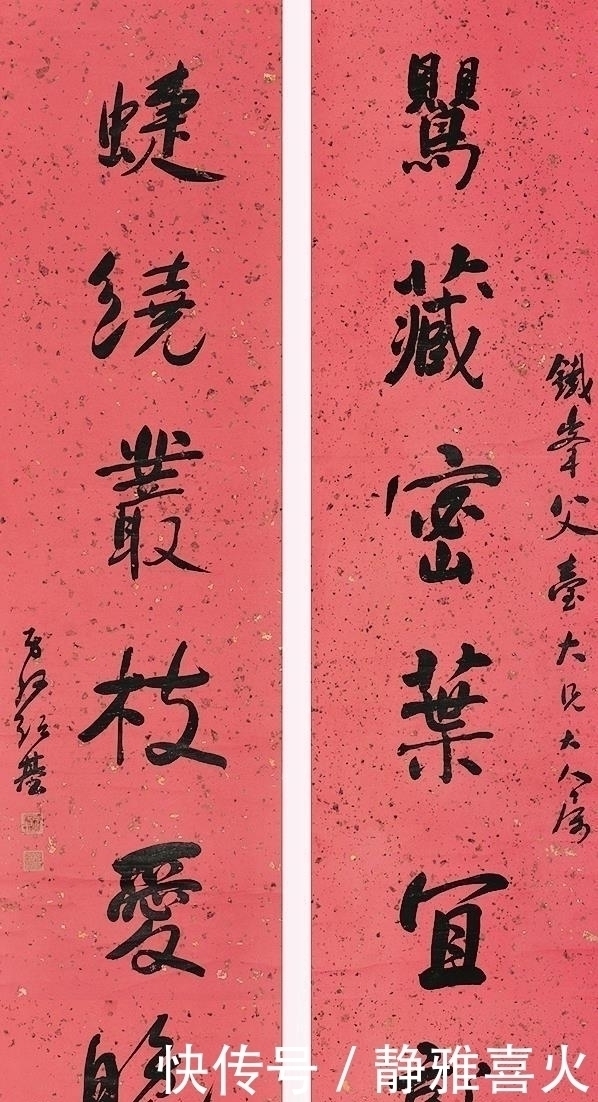 鐵峯父臺大兄大人屬
鸎藏密葉宜
蜨繞叢枝愛
何紹基
快传号 / 静雅喜火